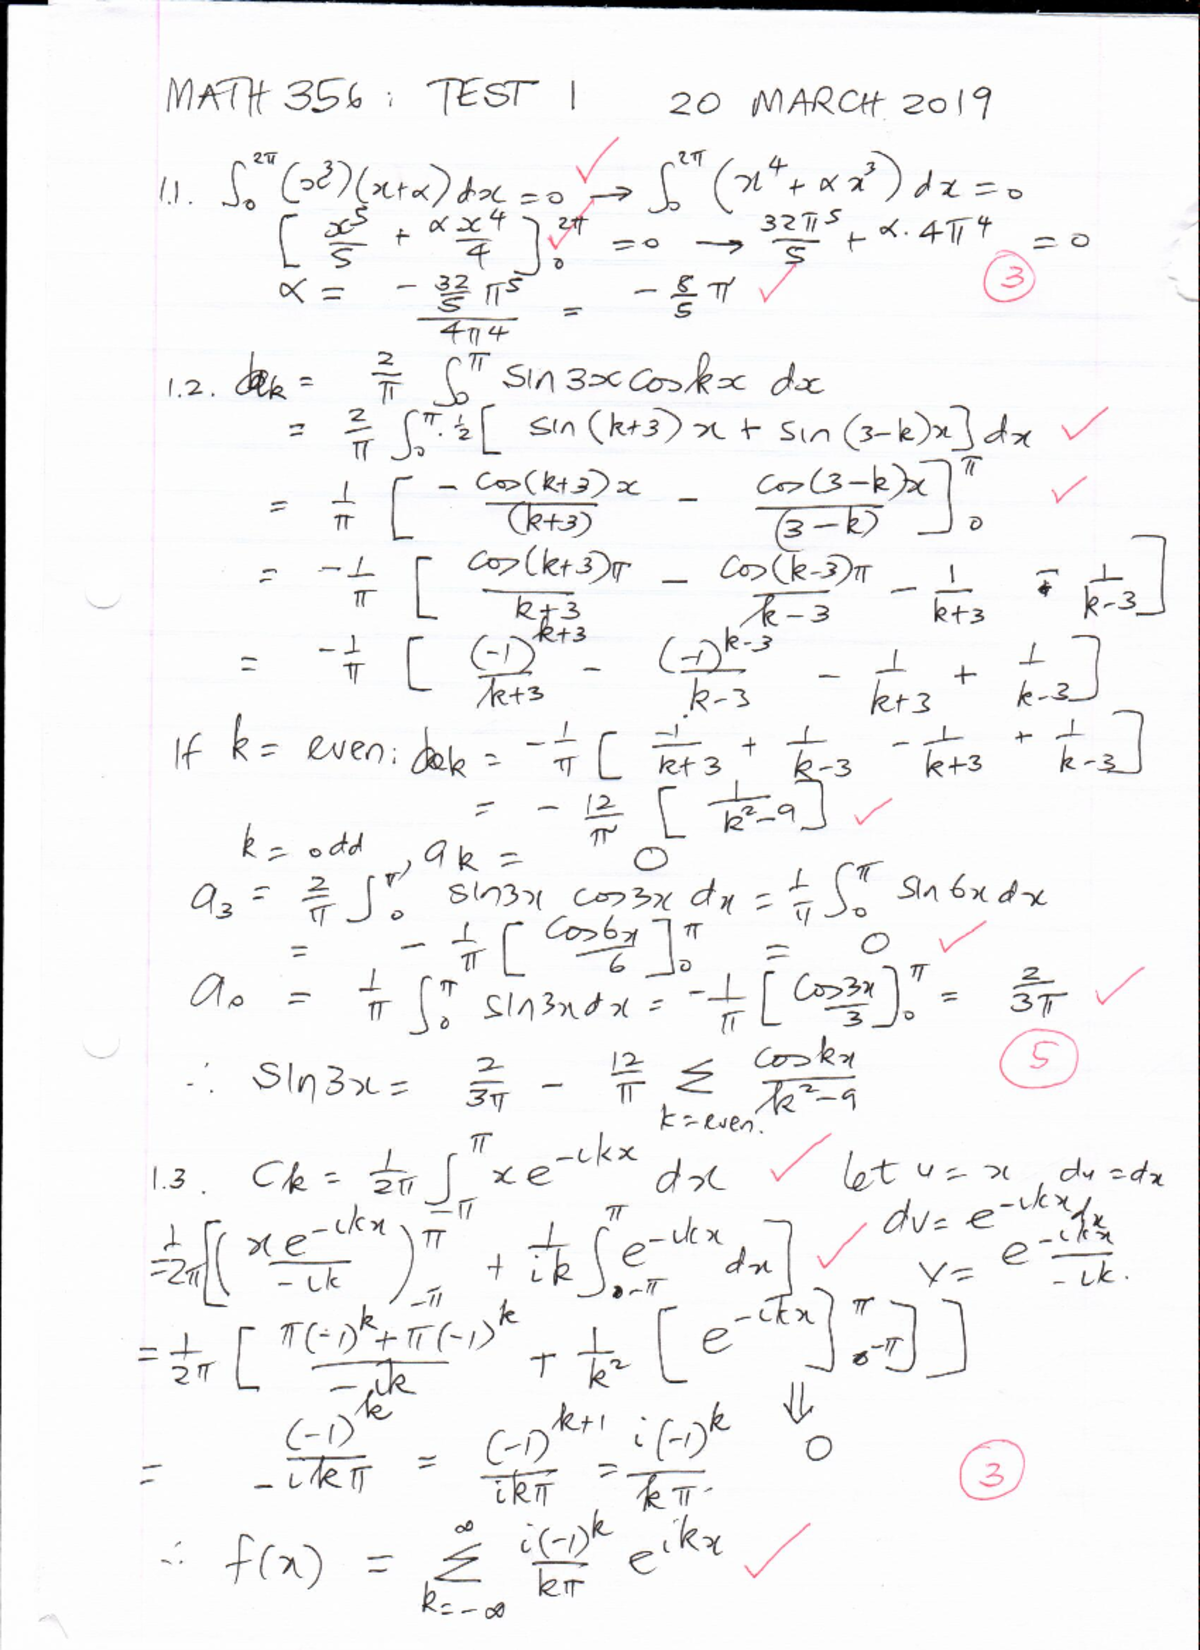 MATH 356: TEST 1 20 MARCH 2019
1.1. ∫₀^2π (x³)(x+α)dx = 0 → ∫₀^2π (x⁴ + αx³) dx = 0
[x⁵/5 + αx⁴/4]₀^2π = 0 → 32π⁵/5 + α·4π⁴ = 0
α = -(32/5 π⁵)/(4π4) = -8/5 π
③
1.2. ak = 2/π ∫₀^π sin3x coskx dx
= 2/π ∫₀^π ·½[sin(k+3)x + sin(3-k)x]dx
= 1/π [-cos(k+3)x/(k+3) - cos(3-k)x/(3-k)]₀^π
= -1/π [cos(k+3)π/(k+3) - cos(k-3)π/(k-3) - 1/(k+3) - 1/(k-3)]
= -1/π [(-1)^(k+3)/(k+3) - (-1)^(k-3)/(k-3) - 1/(k+3) + 1/(k-3)]
If k = even: ak = -1/π [-1/(k+3) + 1/(k-3) - 1/(k+3) + 1/(k-3)]
= -12/π [1/(k²-9)]
k = odd, ak = 0
a₃ = 2/π ∫₀^π sin3x cos3x dx = 1/π ∫₀^π sin6x dx
= -1/π [cos6x/6]₀^π = 0
a₀ = 1/π ∫₀^π sin3x dx = -1/π [cos3x/3]₀^π = 2/3π
⑤
∴ sin3x = 2/3π - 12/π Σ_(k=even.) coskx/(k²-9)
1.3. Ck = 1/2π ∫_-π^π xe^(-ikx) dx let u = x du = dx
dv = e^(-ikx)dx
= 1/2π [(xe^(-ikx)/-ik)_-π^π + 1/ik ∫_-π^π e^(-ikx) dx] v = e^(-ikx)/-ik.
= 1/2π [(π(-1)^k + π(-1)^k)/-ik + 1/k² [e^(-ikx)]_-π^π]]
⇓
= -(-1)^k/ikπ = (-1)^(k+1)/ikπ = i(-1)^k/kπ. 0
③
∴ f(x) = Σ_(k=-∞)^∞ i(-1)^k/kπ e^(ikx)